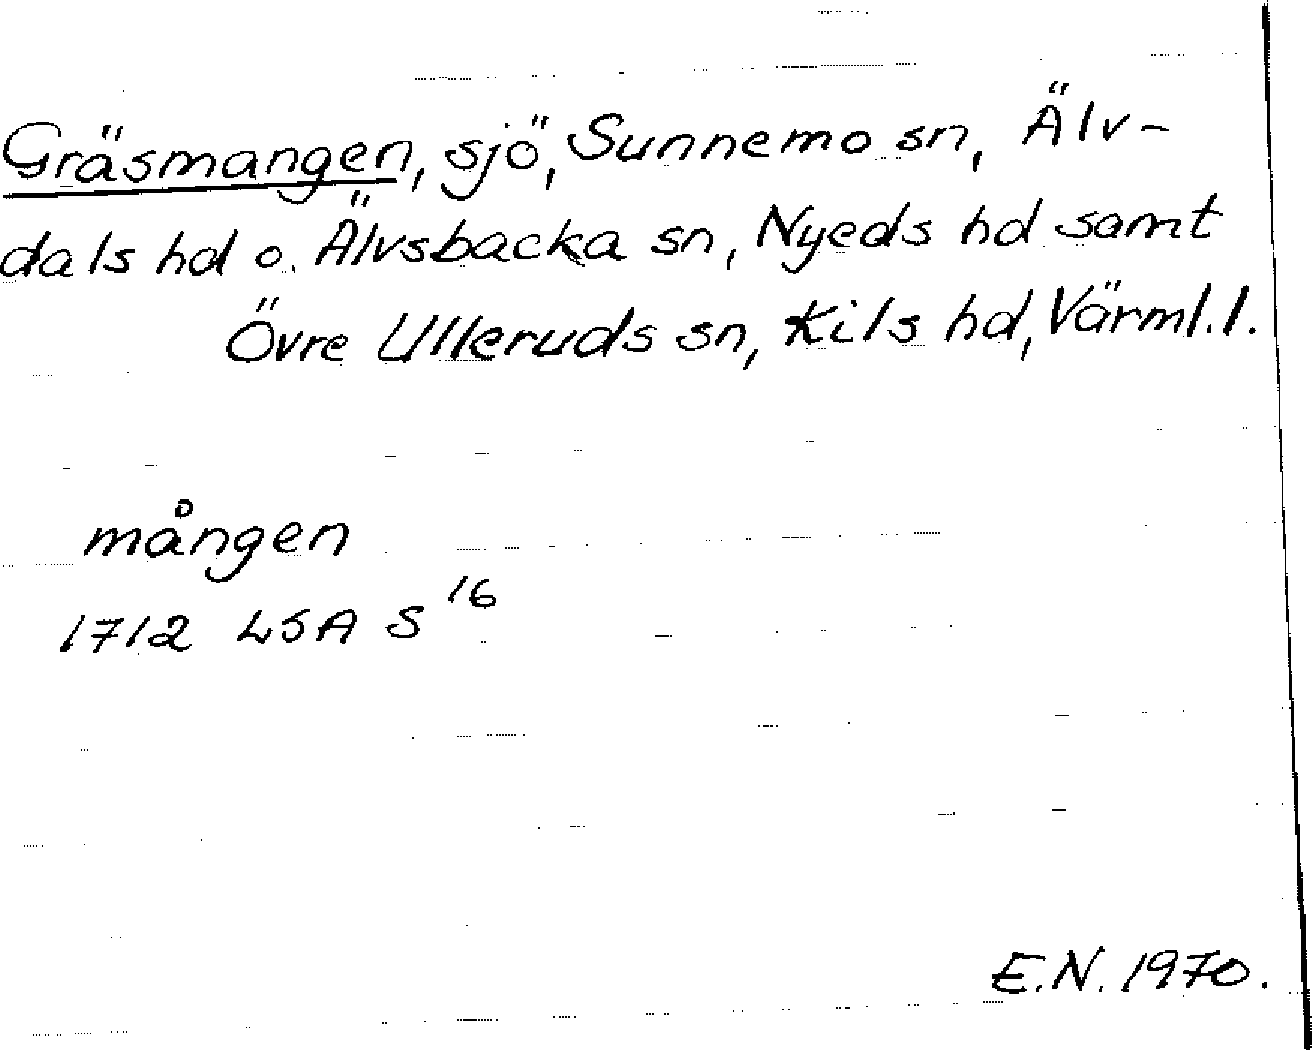 Gräsmangen, sjö, Sunnemo sn, Älv-
dals hd o. Älvsbacka sn, Nyeds hd samt
Övre Ulleruds sn, Kils hd, Värml. l.
mången
1712 LSA S 16
E.N. 1970.